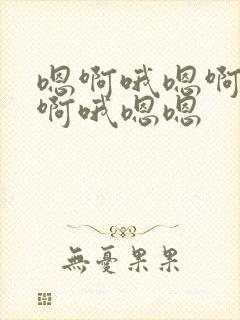 嗯啊哦嗯啊
啊哦嗯嗯
無憂果果